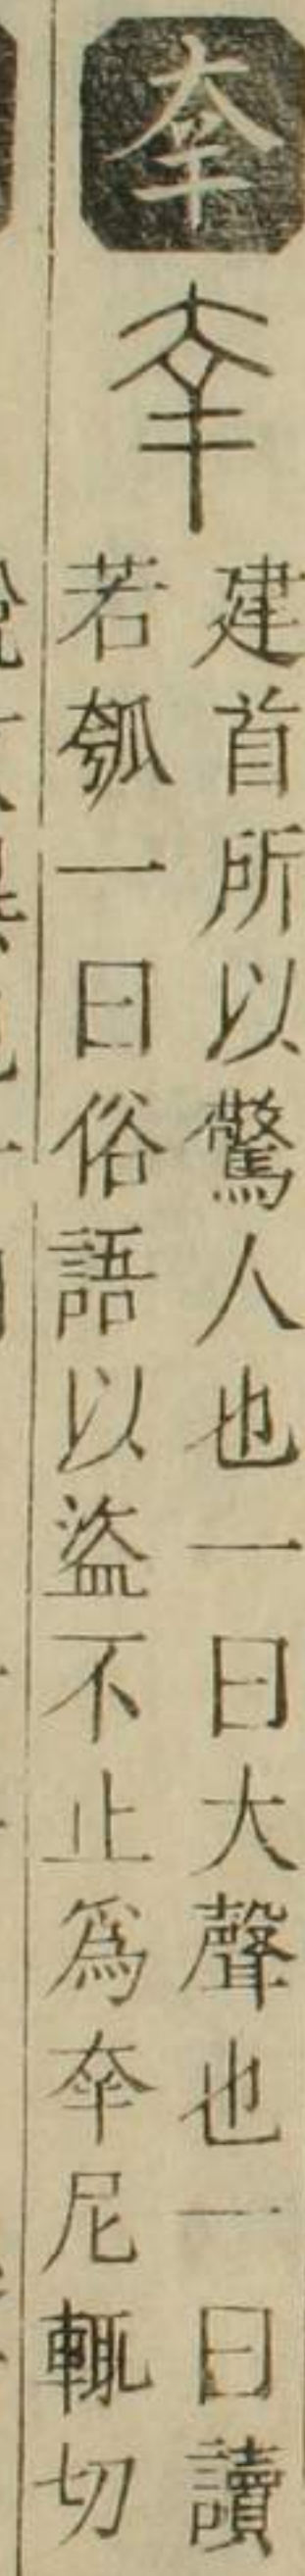 㚔
建首所以驚人也一曰大聲也一曰讀
若瓠一曰俗語以盜不止爲㚔尼輒切